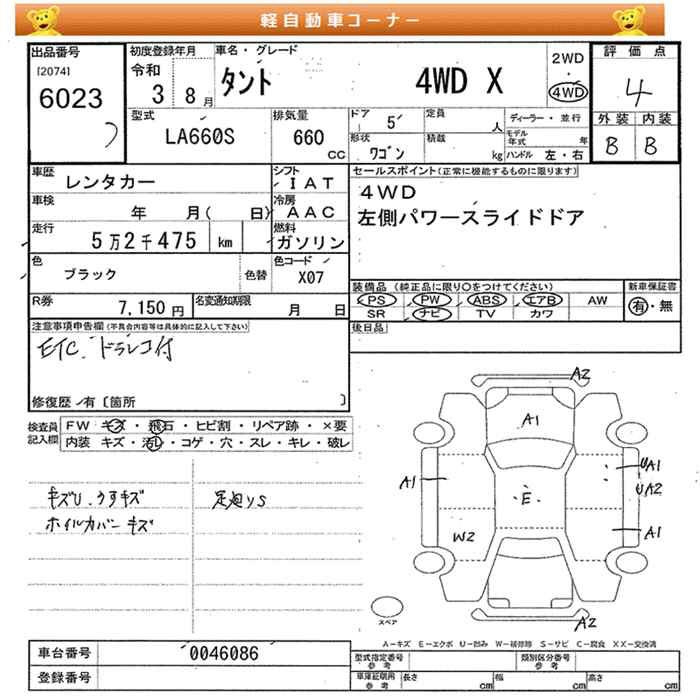 軽自動車コーナー
出品番号
[2074]
6023
初度登録年月
令和
3 8月
車名・グレード
タント 4WD X
2WD
・
4WD
評価点
4
外装 内装
B B
型式
LA660S
排気量
660
cc
ドア
5
定員
人
形状
ワゴン
積載
kg
ディーラー・並行
モデル年式
年
ハンドル 左・右
車歴
レンタカー
シフト
IAT
車検
年 月( 日)
冷房
AAC
走行
5万2千475 km
燃料
ガソリン
色
ブラック
色替
色コード
X07
R券
7,150円
名変通知期限
月 日
セールスポイント(正常に機能するものに限ります)
4WD
左側パワースライドドア
装備品 (純正品に限り〇をつけてください)
PS PW ABS エアB AW
SR ナビ TV カワ
新車保証書
有・無
後日品
注意事項申告欄(不具合内容等は具体的に記入して下さい)
ETC. ドラレコ付
修復歴 有〔箇所 〕
検査員
記入欄
FW キズ・飛石・ヒビ割・リペア跡・×要
内装 キズ・汚レ・コゲ・穴・スレ・キレ・破レ
キズU.うすキズ
ホイルカバー キズ
足廻りS
A2
A1
A1
E
UA1
UA2
A1
W2
A2
スペア
A-キズ E-エクボ U-凹み W-補修跡 S-サビ C-腐食 XX-交換済
車台番号
0046086
登録番号
型式指定番号
参考
類別区分番号
参考
車庫証明用
参考
長さ
cm
幅
cm
高さ
cm